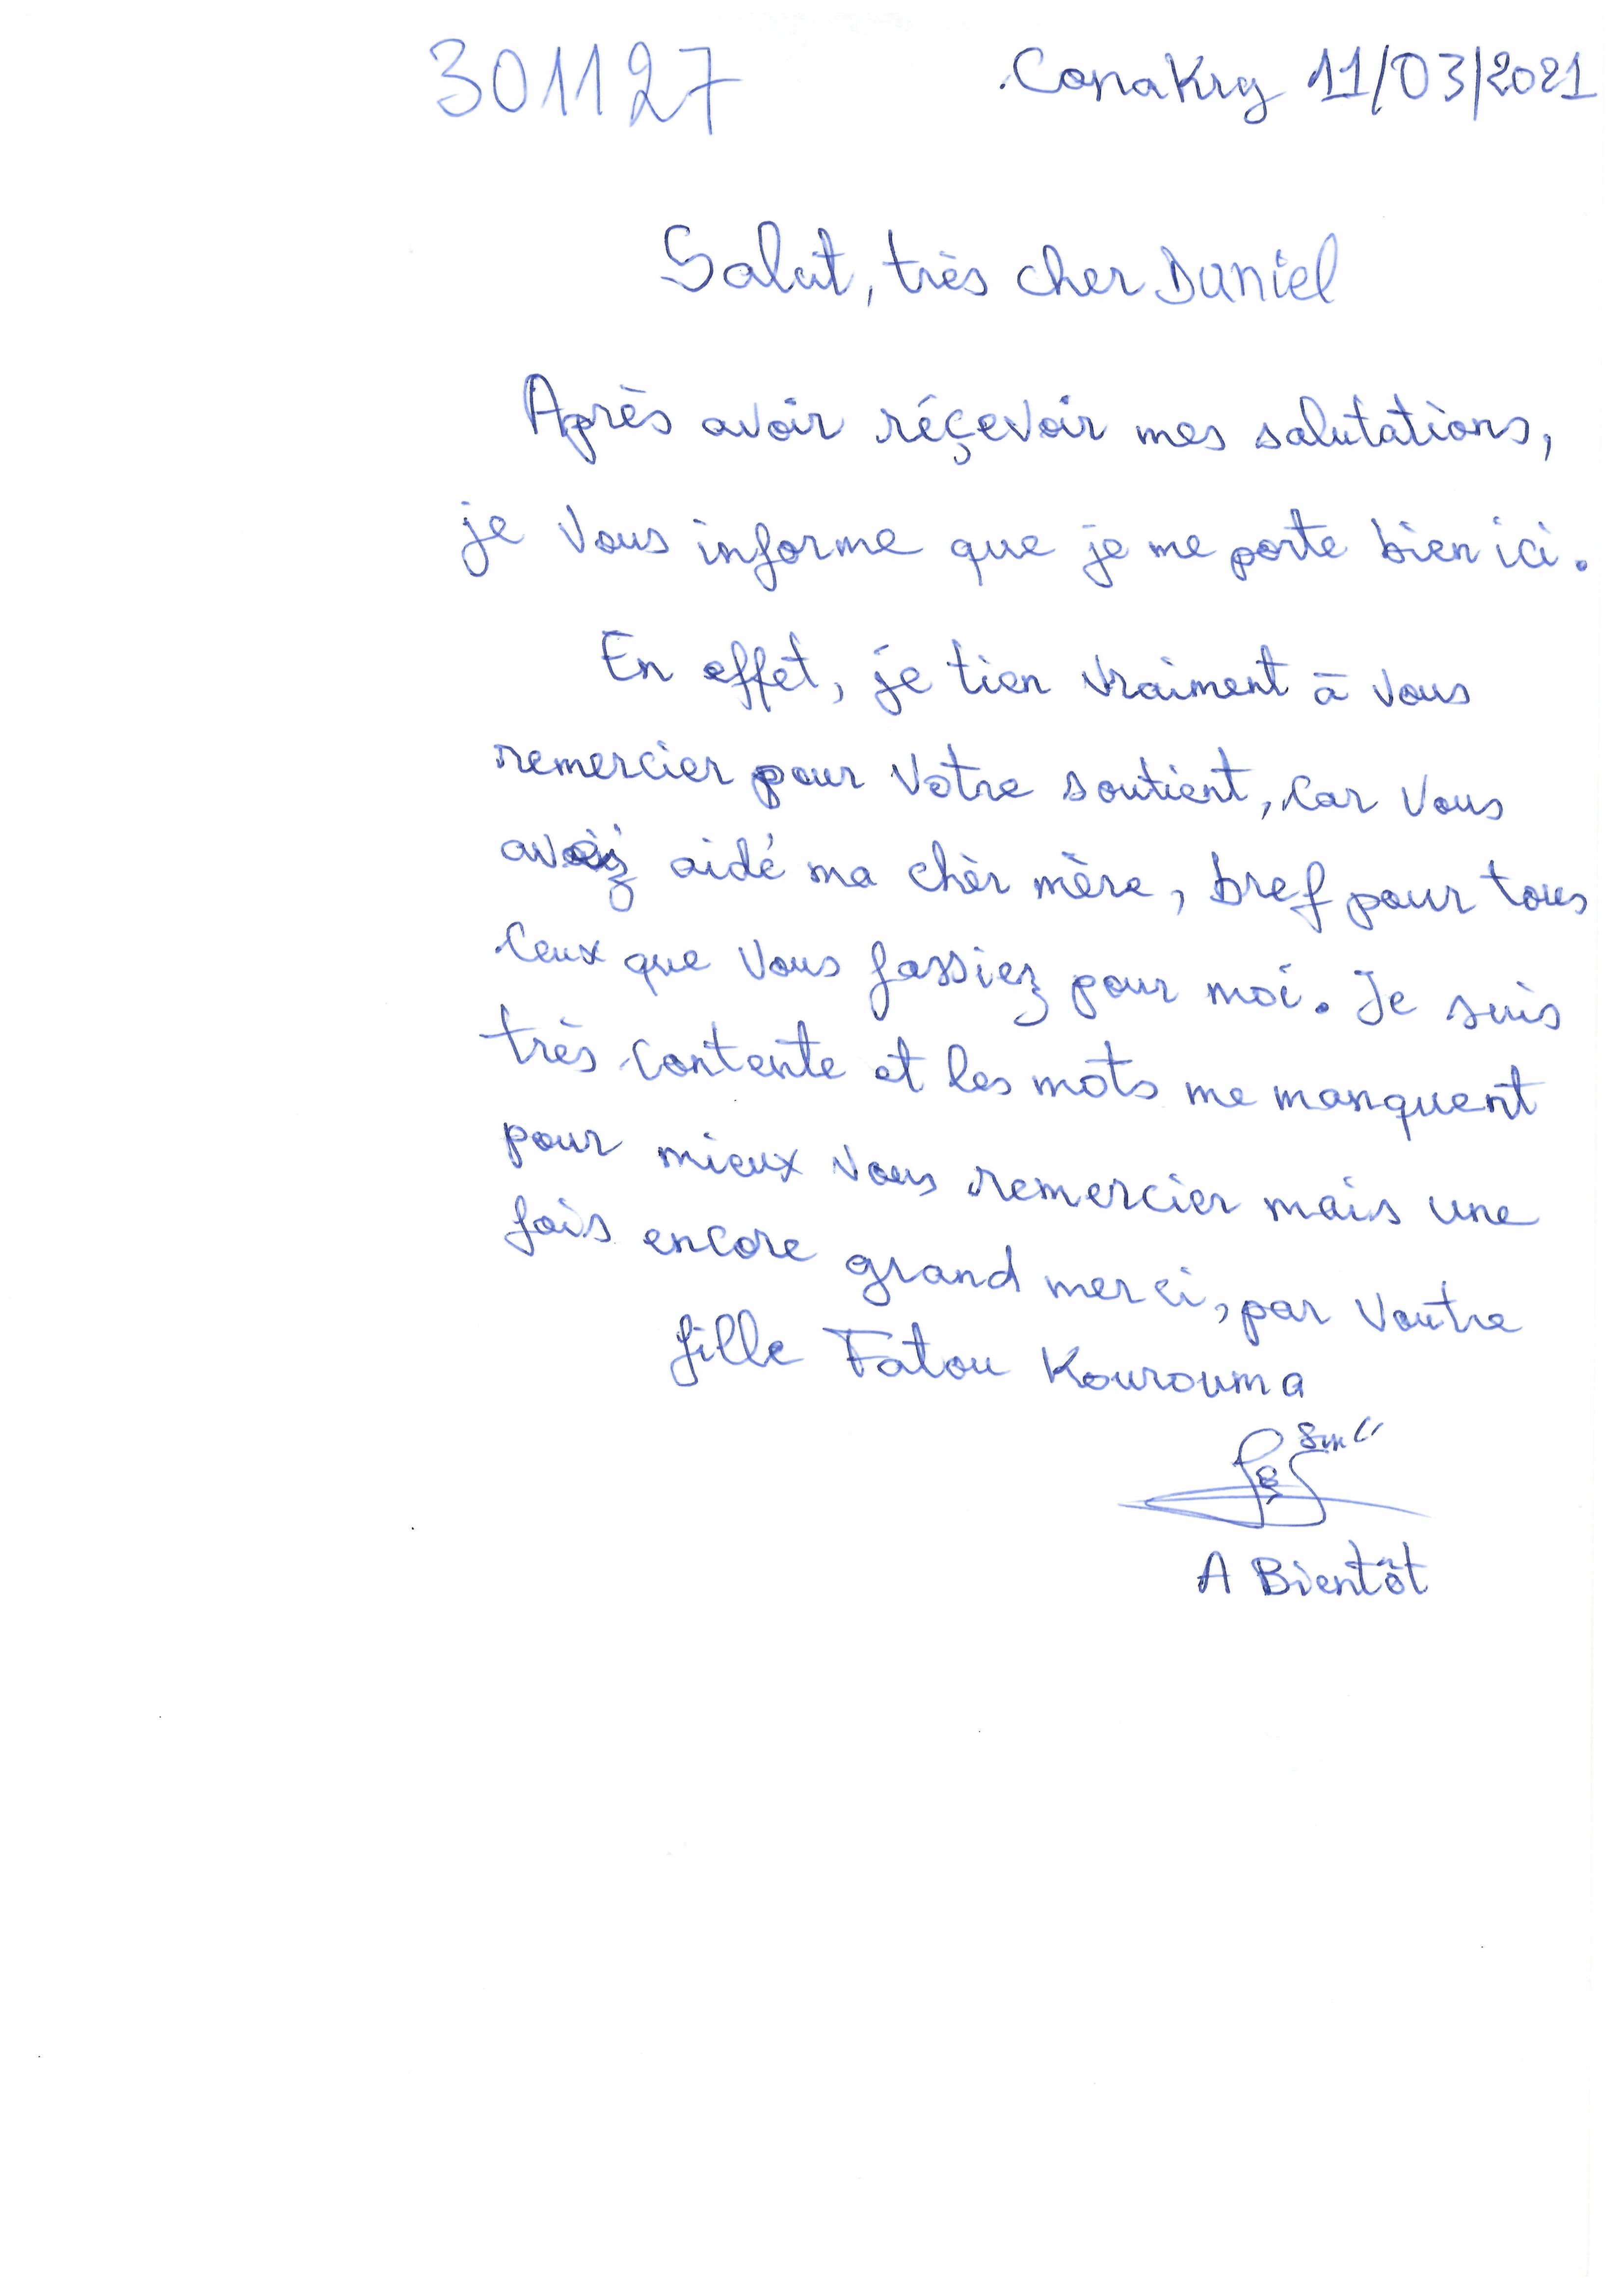 301127
Conakry 11/03/2021
Salut, très cher Daniel
Après avoir réçevoir mes salutations,
je vous informe que je me porte bien ici.
En effet, je tien vraiment à vous
remercier pour votre soutient, car vous
avez aidé ma chèr mère, bref pour tous
ceux que vous fassiez pour moi. Je suis
très contente et les mots me manquent
pour mieux vous remercier mais une
fois encore grand merci, par voutre
fille Fatou Kourouma
A Bientôt